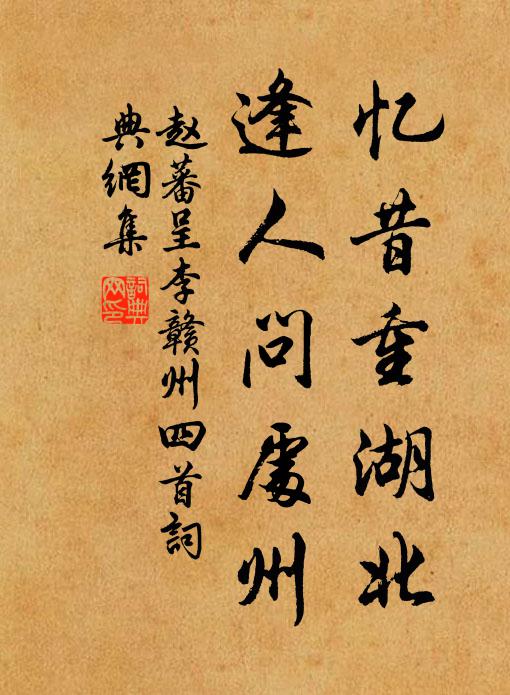 忆昔重湖北
逢人问處州
赵蕃呈李赣州四首詞
典網集
詞典
网印